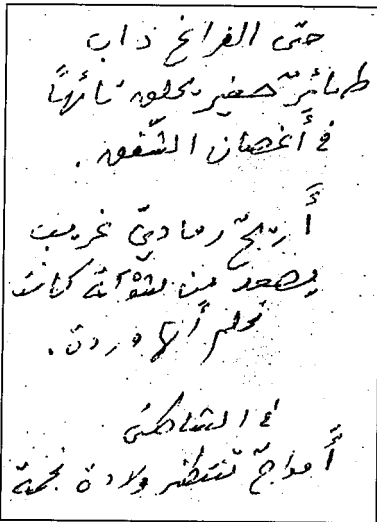 حتى الفراغ ذاب
طائرٌ صغير يحلق تائهًا
في أغصان الشّفق .
أريجٌ رماديّ غريب
يصعد من كانت
تحلم أنها وردة .
في الشاطئ
أمواجٌ تنتظر ولادة نجمة